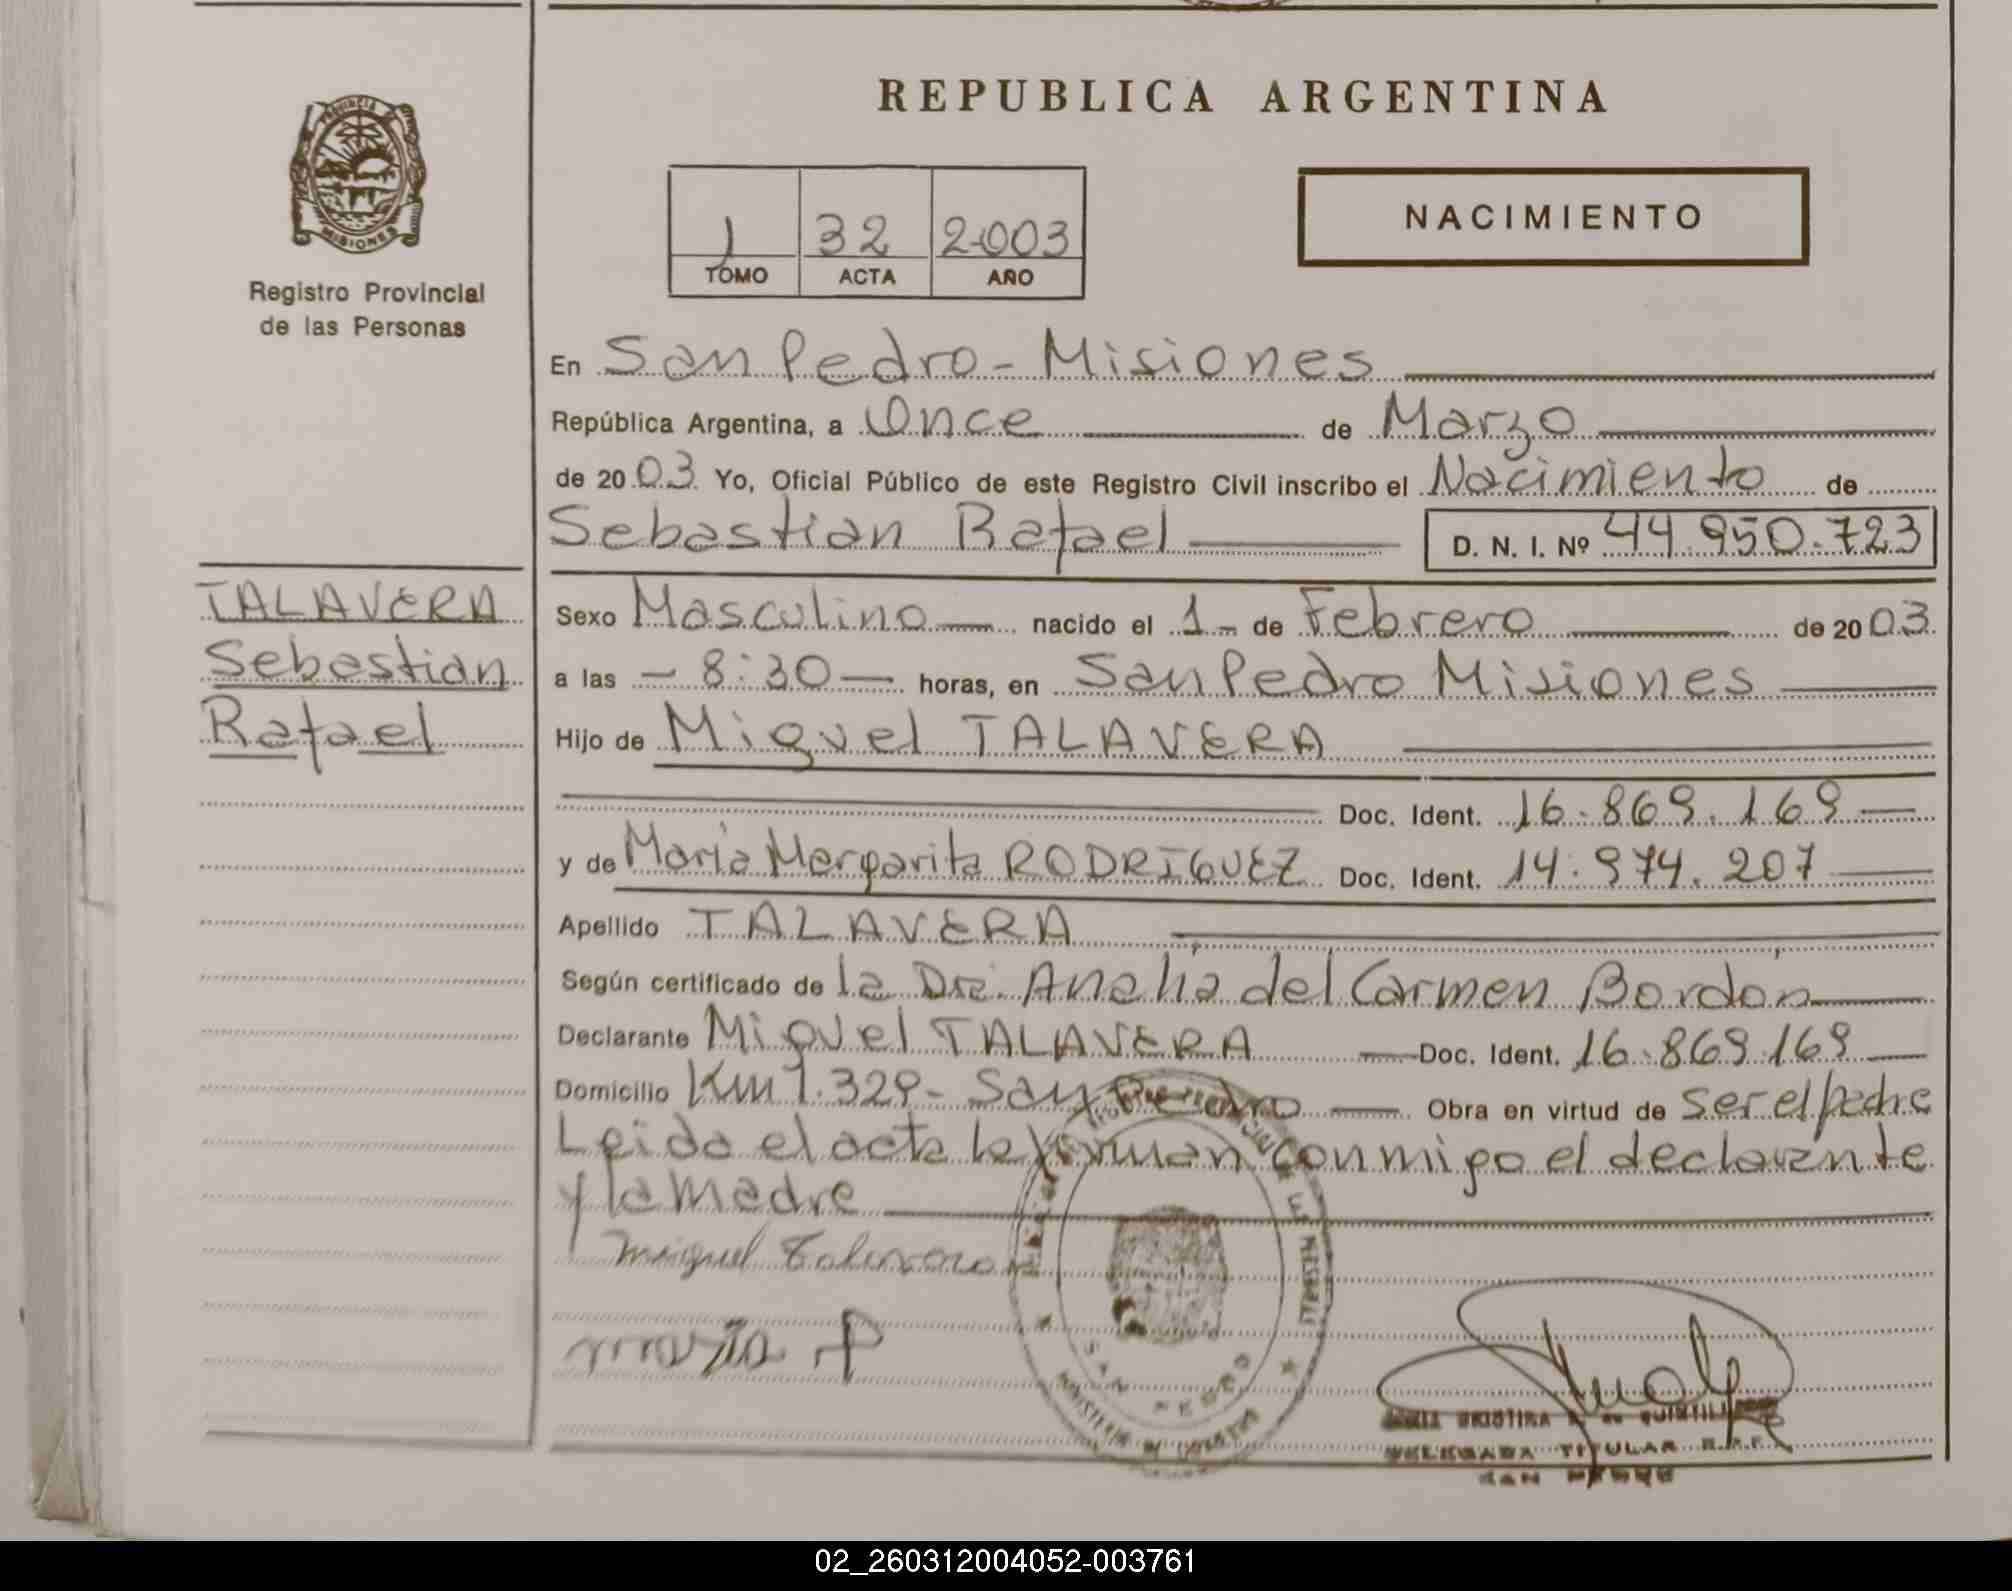 REPUBLICA ARGENTINA
PROVINCIA
MISIONES
Registro Provincial
de las Personas
1 32 2.003
TOMO ACTA AÑO
NACIMIENTO
En San Pedro - Misiones
República Argentina, a Once de Marzo
de 20 03 Yo, Oficial Público de este Registro Civil inscribo el Nacimiento de
Sebastian Rafael D. N. I. Nº 44.950.723
TALAVERA
Sebastian
Rafael
Sexo Masculino nacido el 1 de Febrero de 20 03
a las - 8:30 - horas, en San Pedro Misiones
Hijo de Miguel TALAVERA
Doc. Ident. 16.869.169
y de Maria Margarita RODRIGUEZ Doc. Ident. 14.974.207
Apellido TALAVERA
Según certificado de la Dra. Analia del Carmen Bordón
Declarante Miguel TALAVERA Doc. Ident. 16.869.169
Domicilio Km 1.329 - San Pedro Obra en virtud de ser el padre
Leida el acta la firman conmigo el declarante
y la madre
Miguel Talavera
maria
SAN PEDRO
TITULAR
SAN PEDRO
02_260312004052-003761